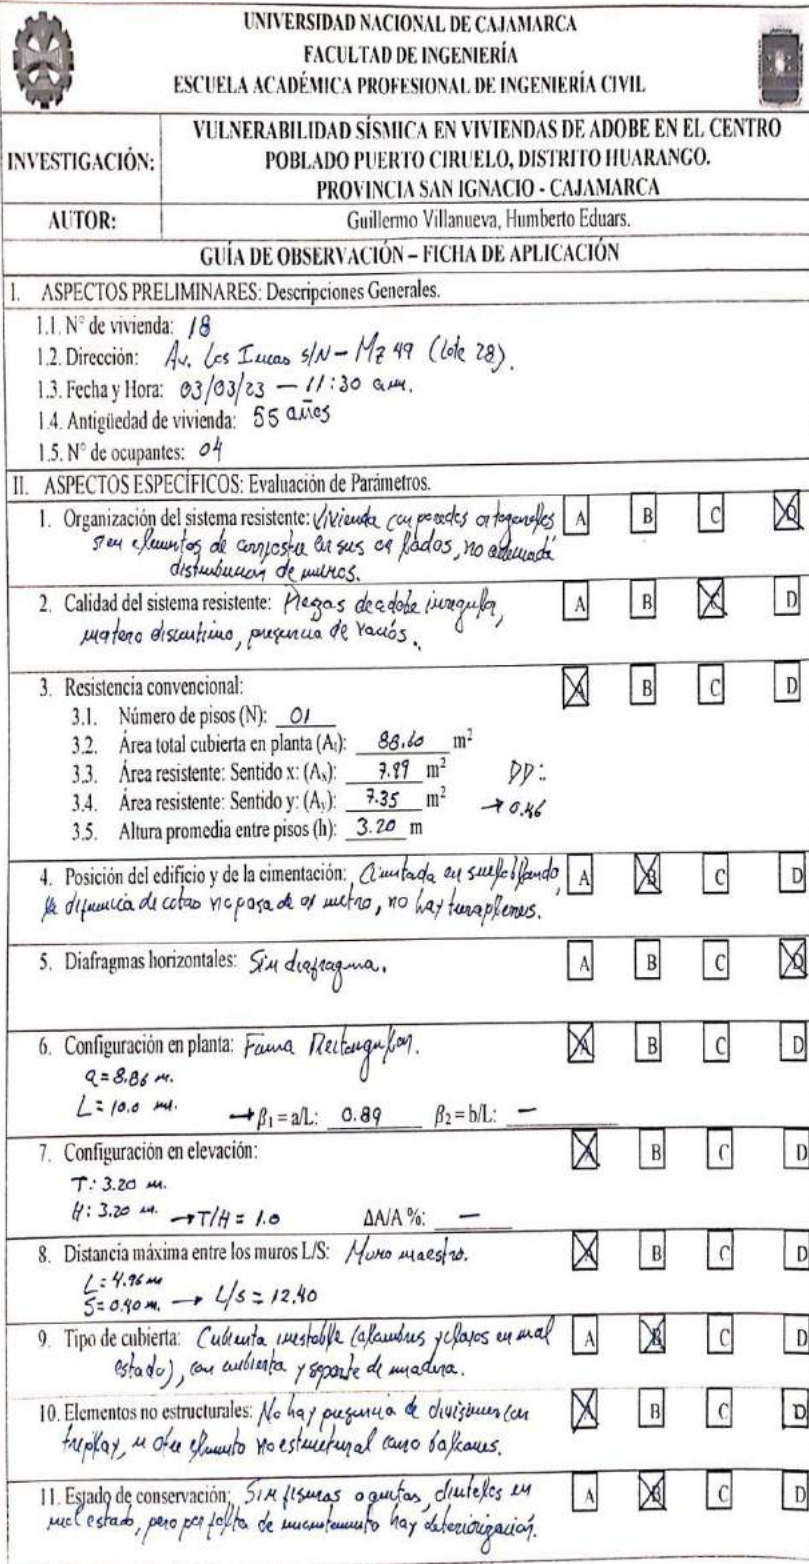 UNIVERSIDAD NACIONAL DE CAJAMARCA
FACULTAD DE INGENIERÍA
ESCUELA ACADÉMICA PROFESIONAL DE INGENIERÍA CIVIL
INVESTIGACIÓN:
VULNERABILIDAD SÍSMICA EN VIVIENDAS DE ADOBE EN EL CENTRO
POBLADO PUERTO CIRUELO, DISTRITO HUARANGO.
PROVINCIA SAN IGNACIO - CAJAMARCA
AUTOR: Guillermo Villanueva, Humberto Eduars.
GUÍA DE OBSERVACIÓN – FICHA DE APLICACIÓN
I. ASPECTOS PRELIMINARES: Descripciones Generales.
1.1. N° de vivienda: 18
1.2. Dirección: Av. Los Incas S/N - Mz 49 (Lote 28).
1.3. Fecha y Hora: 03/03/23 — 11:30 a.m.
1.4. Antigüedad de vivienda: 55 años
1.5. N° de ocupantes: 04
II. ASPECTOS ESPECÍFICOS: Evaluación de Parámetros.
1. Organización del sistema resistente: Vivienda con paredes ortogonales A B C D
sin elementos de arriostre en sus lados, no adecuada
distribución de muros.
2. Calidad del sistema resistente: Piezas de adobe irregular, A B C D
mortero discontinuo, presencia de vacíos.
3. Resistencia convencional: A B C D
3.1. Número de pisos (N): 01
3.2. Área total cubierta en planta (At): 88.60 m²
3.3. Área resistente: Sentido x: (Ax): m² DD:
3.4. Área resistente: Sentido y: (Ay): 7.35 m² → 0.46
3.5. Altura promedia entre pisos (h): 3.20 m
4. Posición del edificio y de la cimentación: Cimentada en suelo blando, A B C D
la diferencia de cotas no pasa de 01 metro, no hay terraplenes.
5. Diafragmas horizontales: Sin diafragma. A B C D
6. Configuración en planta: Forma Rectangular. A B C D
a = 8.86 m.
L = 10.0 m. → β₁ = a/L: 0.89 β₂ = b/L: —
7. Configuración en elevación: A B C D
T: 3.20 m.
H: 3.20 m. → T/H = 1.0 ΔA/A %: —
8. Distancia máxima entre los muros L/S: Muro maestro. A B C D
L = 4.96 m
S = 0.40 m. → L/S = 12.40
9. Tipo de cubierta: Cubierta inestable (alambres y clavos en mal A B C D
estado), con cubierta y soporte de madera.
10. Elementos no estructurales: No hay presencia de divisiones con A B C D
triplay, u otro elemento no estructural como balcones.
11. Estado de conservación: Sin fisuras o grietas, dinteles en A B C D
mal estado, pero por falta de hay deteriorización.